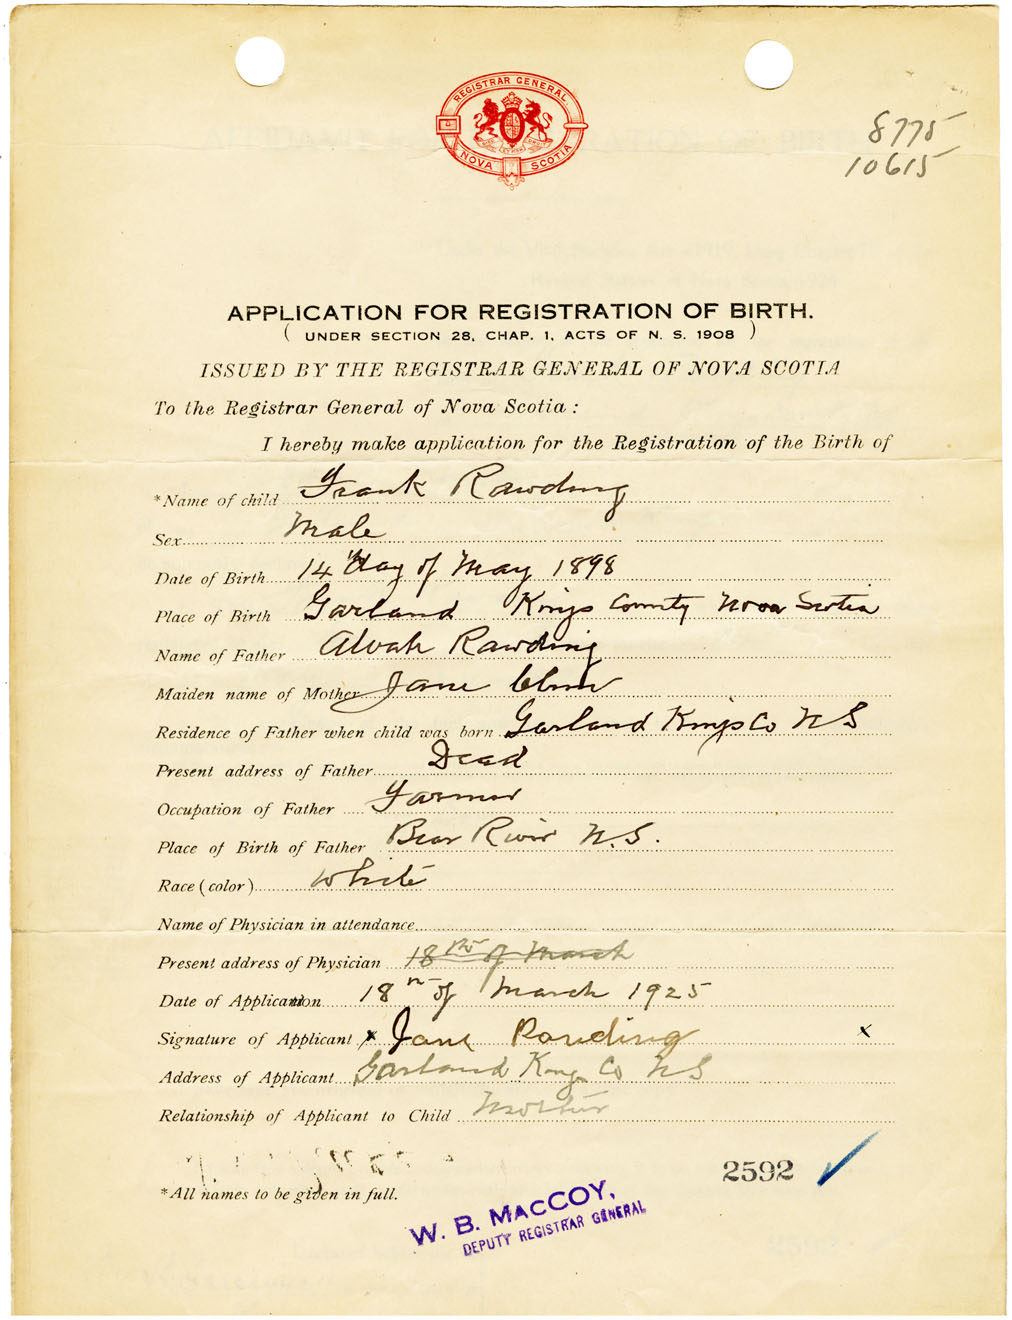 REGISTRAR GENERAL
NOVA SCOTIA
8775
10615
APPLICATION FOR REGISTRATION OF BIRTH.
( UNDER SECTION 28, CHAP. 1, ACTS OF N. S. 1908 )
ISSUED BY THE REGISTRAR GENERAL OF NOVA SCOTIA
To the Registrar General of Nova Scotia :
I hereby make application for the Registration of the Birth of
*Name of child Frank Rawding
Sex Male
Date of Birth 14 day of May 1898
Place of Birth Garland Kings County Nova Scotia
Name of Father Alvah Rawding
Maiden name of Mother Jane
Residence of Father when child was born Garland Kings Co N S
Present address of Father Dead
Occupation of Father Farmer
Place of Birth of Father Bear River N.S.
Race (color) White
Name of Physician in attendance
Present address of Physician 18th of March
Date of Application 18th of March 1925
Signature of Applicant x Jane Rawding x
Address of Applicant Garland Kings Co N S
Relationship of Applicant to Child Mother
2592
*All names to be given in full.
W. B. MACCOY,
DEPUTY REGISTRAR GENERAL